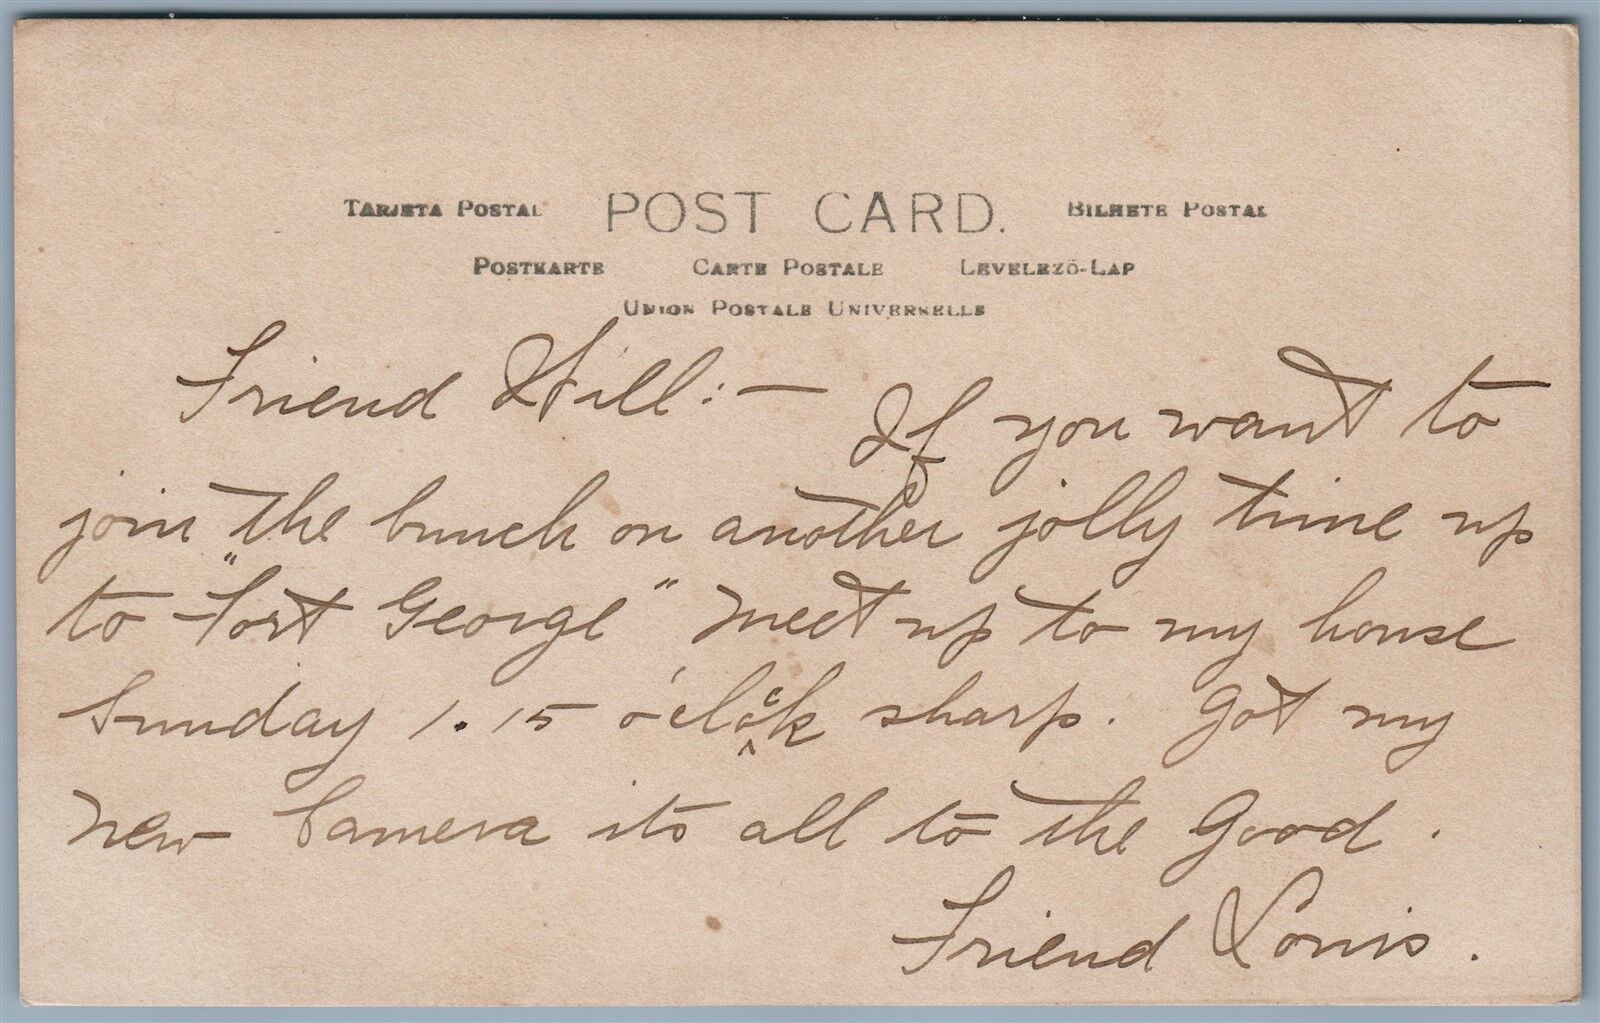 TARJETA POSTAL POST CARD. BILHETE POSTAL
POSTKARTE CARTE POSTALE LEVELEZŐ-LAP
UNION POSTALE UNIVERSELLE
Friend Will:— If you want to
join the bunch on another jolly time up
to "Fort George" meet up to my house
Sunday 1.15 o'clock sharp. Got my
new Camera its all to the Good.
Friend Louis.